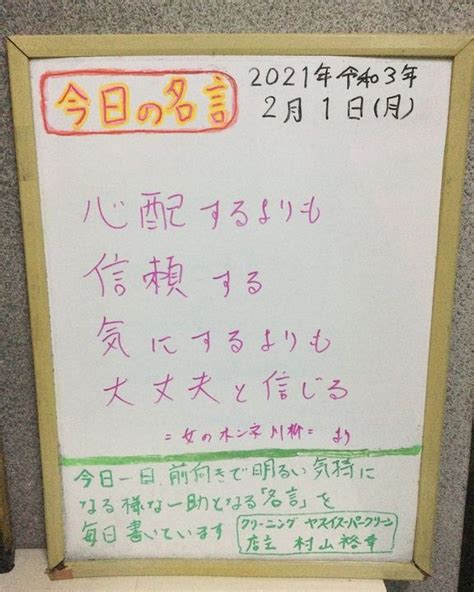 今日の名言
2021年令和3年
2月1日(月)
心配するよりも
信頼する
気にするよりも
大丈夫と信じる
=女のホンネ川柳= より
今日一日、前向きで明るい気持に
なる様な一助となる「名言」を
毎日書いています
クリーニング ヤスイスーパークリーン
店主 村山裕幸